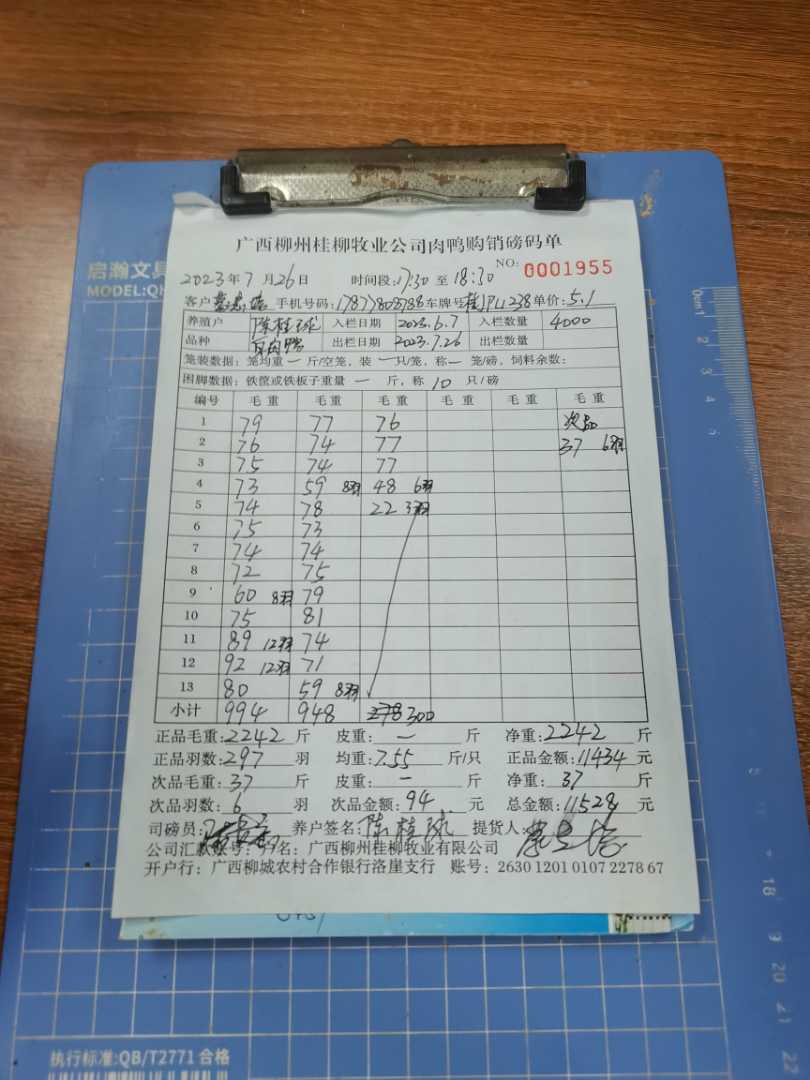 启瀚文具
MODEL:QH
广西柳州桂柳牧业公司肉鸭购销磅码单
2023年7月26日 时间段:17:30 至 18:30 NO: 0001955
客户 手机号码: 车牌号 单价:5.1
养殖户 陈桂球 入栏日期 2023.6.7 入栏数量 4000
品种 肉鸭 出栏日期 2023.7.26 出栏数量
笼装数据: 笼均重 一 斤/空笼, 装 一 只/笼, 称 一 笼/磅, 饲料余数:
困脚数据: 铁筐或铁板子重量 一 斤, 称 10 只/磅
编号 毛重 毛重 毛重 毛重 毛重 毛重
1 79 77 76 次品
2 76 74 77 37 6羽
3 75 74 77
4 73 59 8羽 48 6羽
5 74 78 22 3羽
6 75 73
7 74 74
8 72 75
9 60 8羽 79
10 75 81
11 89 12羽 74
12 92 12羽 71
13 80 59 8羽
小计 994 948 278 300
正品毛重:2242斤 皮重: 一 斤 净重:2242斤
正品羽数:297羽 均重:7.55斤/只 正品金额:11434元
次品毛重:37斤 皮重: 一 斤 净重: 37 斤
次品羽数: 6 羽 次品金额:94元 总金额:11528元
司磅员: 养户签名:陈桂球 提货人:
公司汇款账号: 户名: 广西柳州桂柳牧业有限公司
开户行: 广西柳城农村合作银行洛崖支行 账号: 2630 1201 0107 2278 67
执行标准:QB/T2771 合格
0mm1
2
3
4
5
6
17
18
19
20
21
22